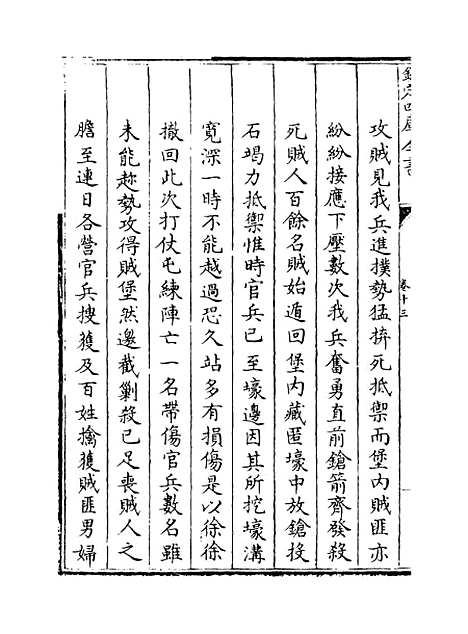 欽定四庫全書
卷十三
攻賊見我兵進撲勢猛拚死抵禦而堡内賊匪亦
紛紛接應下壓數次我兵奮勇直前鎗箭齊發殺
死賊人百餘名賊始遁回堡内藏匿壕中放鎗投
石竭力抵禦惟時官兵已至壕邊因其所挖壕溝
寛深一時不能越過恐久站多有損傷是以徐徐
撤回此次打仗屯練陣亡一名帶傷官兵數名雖
未能趂勢攻得賊堡然邀截剿殺已足喪賊人之
膽至連日各營官兵搜獲及百姓擒獲賊匪男婦